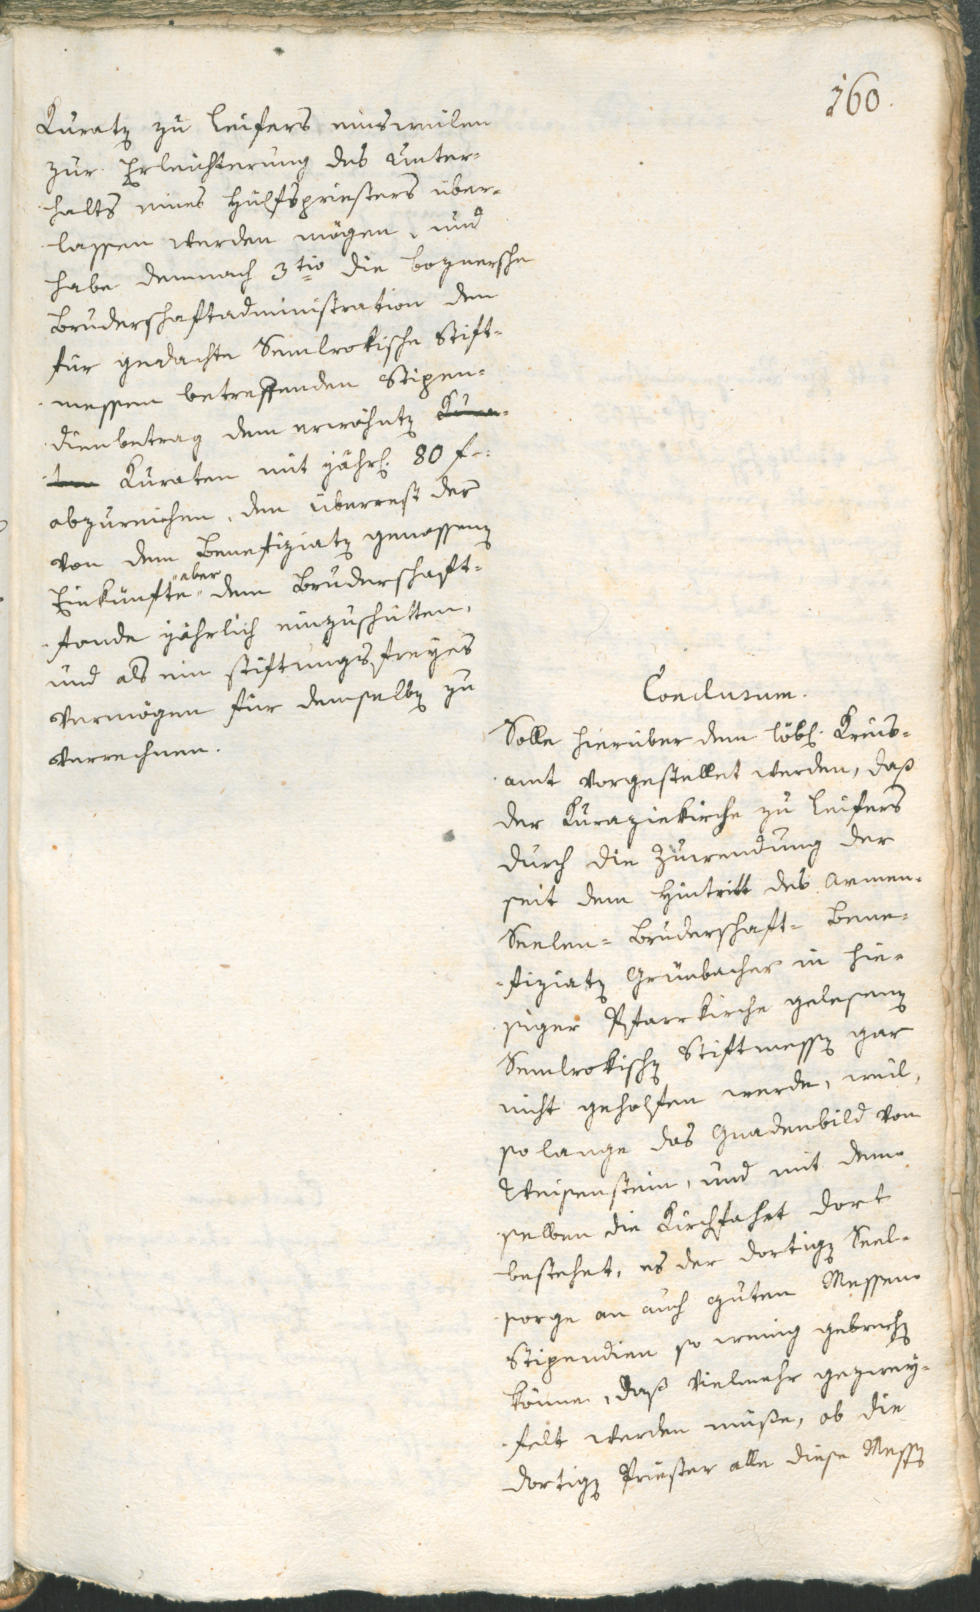 160.
Kuratz zu Leifers einsweilen
zur Erleichterung des Unter-
halts eines Hülfspriesters über-
lassen werden mögen, und
habe demnach 3tio die boznersche
Bruderschaftadministration den
für gedachte Semlrokische Stift-
messen betreffenden Stipen-
dienbetrag dem erwähntz Kura-
ten Kuraten mit jährl. 80 f.
abzureichen, den Überrest der
von dem Benefiziatz genossenz
Einkünfte aber dem Bruderschaft-
fonde jährlich einzuschütten,
und als ein stiftungsfreyes
Vermögen für denselbz zu
verrechnen.
Conclusum.
Solle hierüber dem löbl. Kreis-
amt vorgestellet werden, daß
der Kuraziekirche zu Leifers
durch die Zuwendung der
seit dem Hintritt des Armen-
Seelen-Bruderschaft-Bene-
fiziatz Grünbacher in hie-
siger Pfarrkirche gelesenz
Semlrokischz Stiftmessz gar
nicht geholfen werde, weil,
so lange das Gnadenbild von
Weisenstein, und mit dem-
selben die Kirchfahrt dort
bestehet, es der dortigz Seel-
sorge an auch guten Messen-
Stipendien so wenig gebrechz
könne, daß vielmehr gezwey-
felt werden müße, ob die
dortigz Priester alle diese Messz